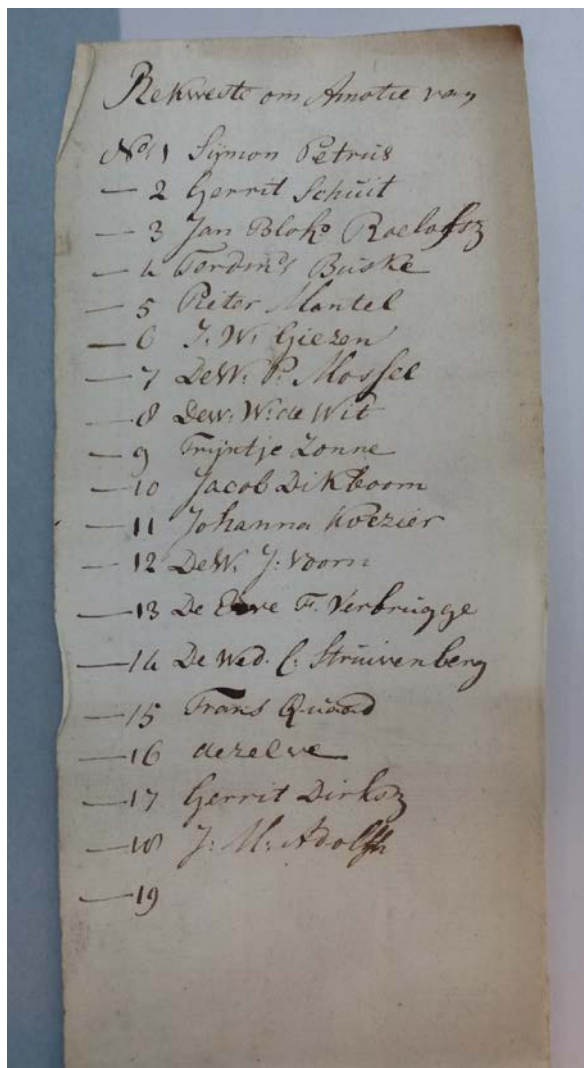 Rekweste om Amotie van
No. 1 Sijmon Petrus
— 2 Gerrit Schuit
— 3 Jan Blok Roelofsz
— 4 Ferdind Buske
— 5 Pieter Mantel
— 6 J. W. Giezen
— 7 DeW. P. Mossel
— 8 DeW. W. de Wit
— 9 Trijntje Zonne
— 10 Jacob Dikboom
— 11 Johanna Koezier
— 12 DeW. J. Voorn
— 13 De F. Verbrugge
— 14 De Wed. C. Struivenberg
— 15 Frans Quaad
— 16 dezelve
— 17 Gerrit Dirksz
— 18 J. M. Adolfs
— 19